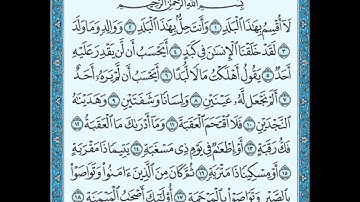 بِسْمِ اللَّهِ الرَّحْمَٰنِ الرَّحِيمِ
لَآ أُقْسِمُ بِهَٰذَا الْبَلَدِ ١ وَأَنتَ حِلٌّۢ بِهَٰذَا الْبَلَدِ ٢ وَوَالِدٍ وَمَا وَلَدَ
٣ لَقَدْ خَلَقْنَا الْإِنسَٰنَ فِي كَبَدٍ ٤ أَيَحْسَبُ أَن لَّن يَقْدِرَ عَلَيْهِ
أَحَدٌ ٥ يَقُولُ أَهْلَكْتُ مَالًا لُّبَدًا ٦ أَيَحْسَبُ أَن لَّمْ يَرَهُۥٓ أَحَدٌ
٧ أَلَمْ نَجْعَل لَّهُۥ عَيْنَيْنِ ٨ وَلِسَانًا وَشَفَتَيْنِ ٩ وَهَدَيْنَٰهُ
النَّجْدَيْنِ ١٠ فَلَا اقْتَحَمَ الْعَقَبَةَ ١١ وَمَآ أَدْرَىٰكَ مَا الْعَقَبَةُ ١٢
فَكُّ رَقَبَةٍ ١٣ أَوْ إِطْعَٰمٌ فِي يَوْمٍ ذِي مَسْغَبَةٍ ١٤ يَتِيمًا ذَا مَقْرَبَةٍ
١٥ أَوْ مِسْكِينًا ذَا مَتْرَبَةٍ ١٦ ثُمَّ كَانَ مِنَ الَّذِينَ ءَامَنُوا وَتَوَاصَوْا
بِالصَّبْرِ وَتَوَاصَوْا بِالْمَرْحَمَةِ ١٧ أُولَٰٓئِكَ أَصْحَٰبُ الْمَيْمَنَةِ ١٨